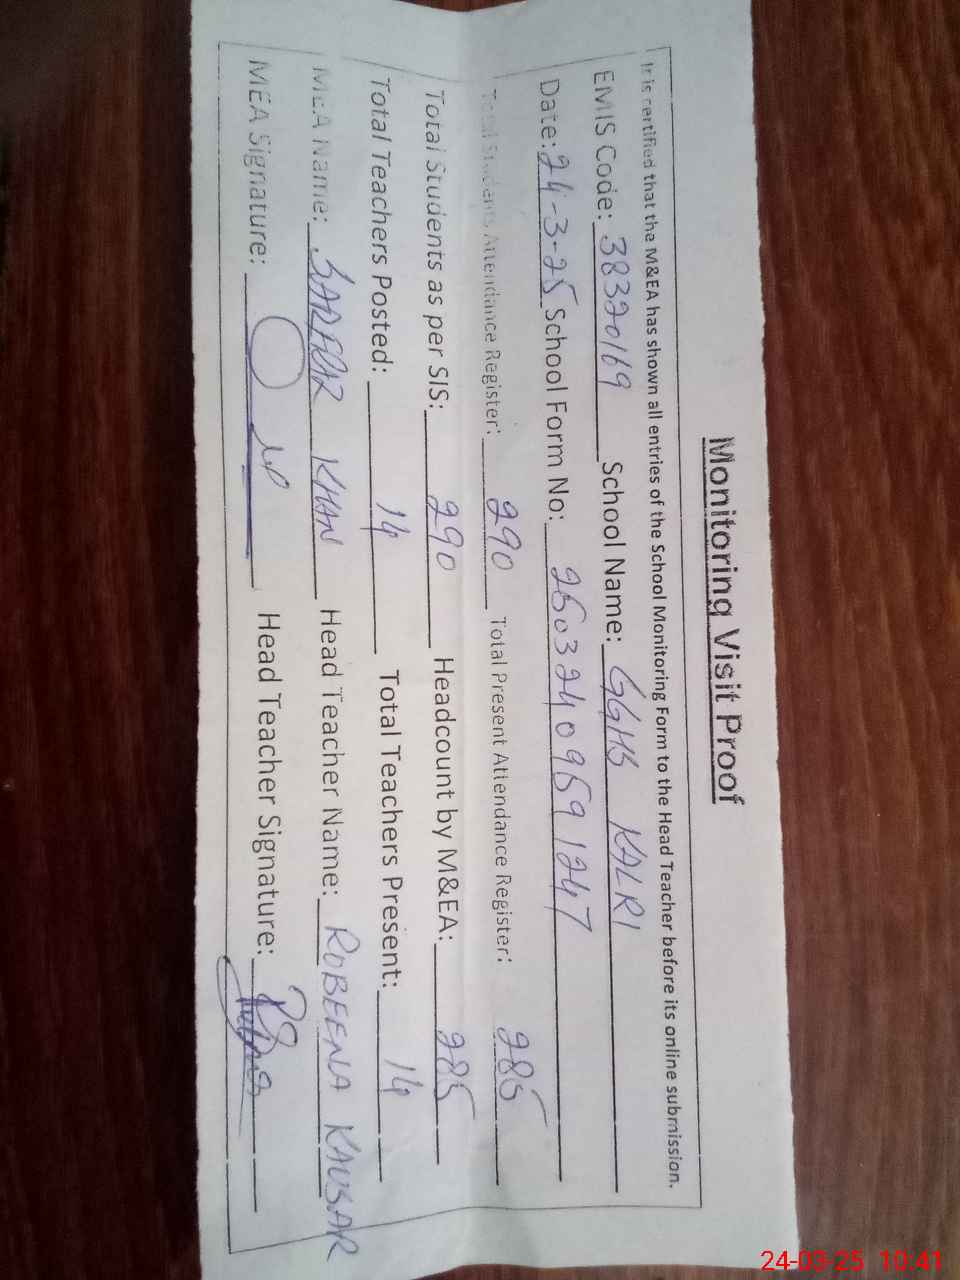 Monitoring Visit Proof
It is certified that the M&EA has shown all entries of the School Monitoring Form to the Head Teacher before its online submission.
EMIS Code: 38320169 School Name: GGHS KALRI
Date: 24-3-25 School Form No: 25032409591247
Total Students Attendance Register: 290 Total Present Attendance Register: 285
Total Students as per SIS: 290 Headcount by M&EA: 285
Total Teachers Posted: 14 Total Teachers Present: 14
MEA Name: SARFRAZ KHAN Head Teacher Name: ROBEENA KAUSAR
MEA Signature: Head Teacher Signature:
24-03-25 10:41